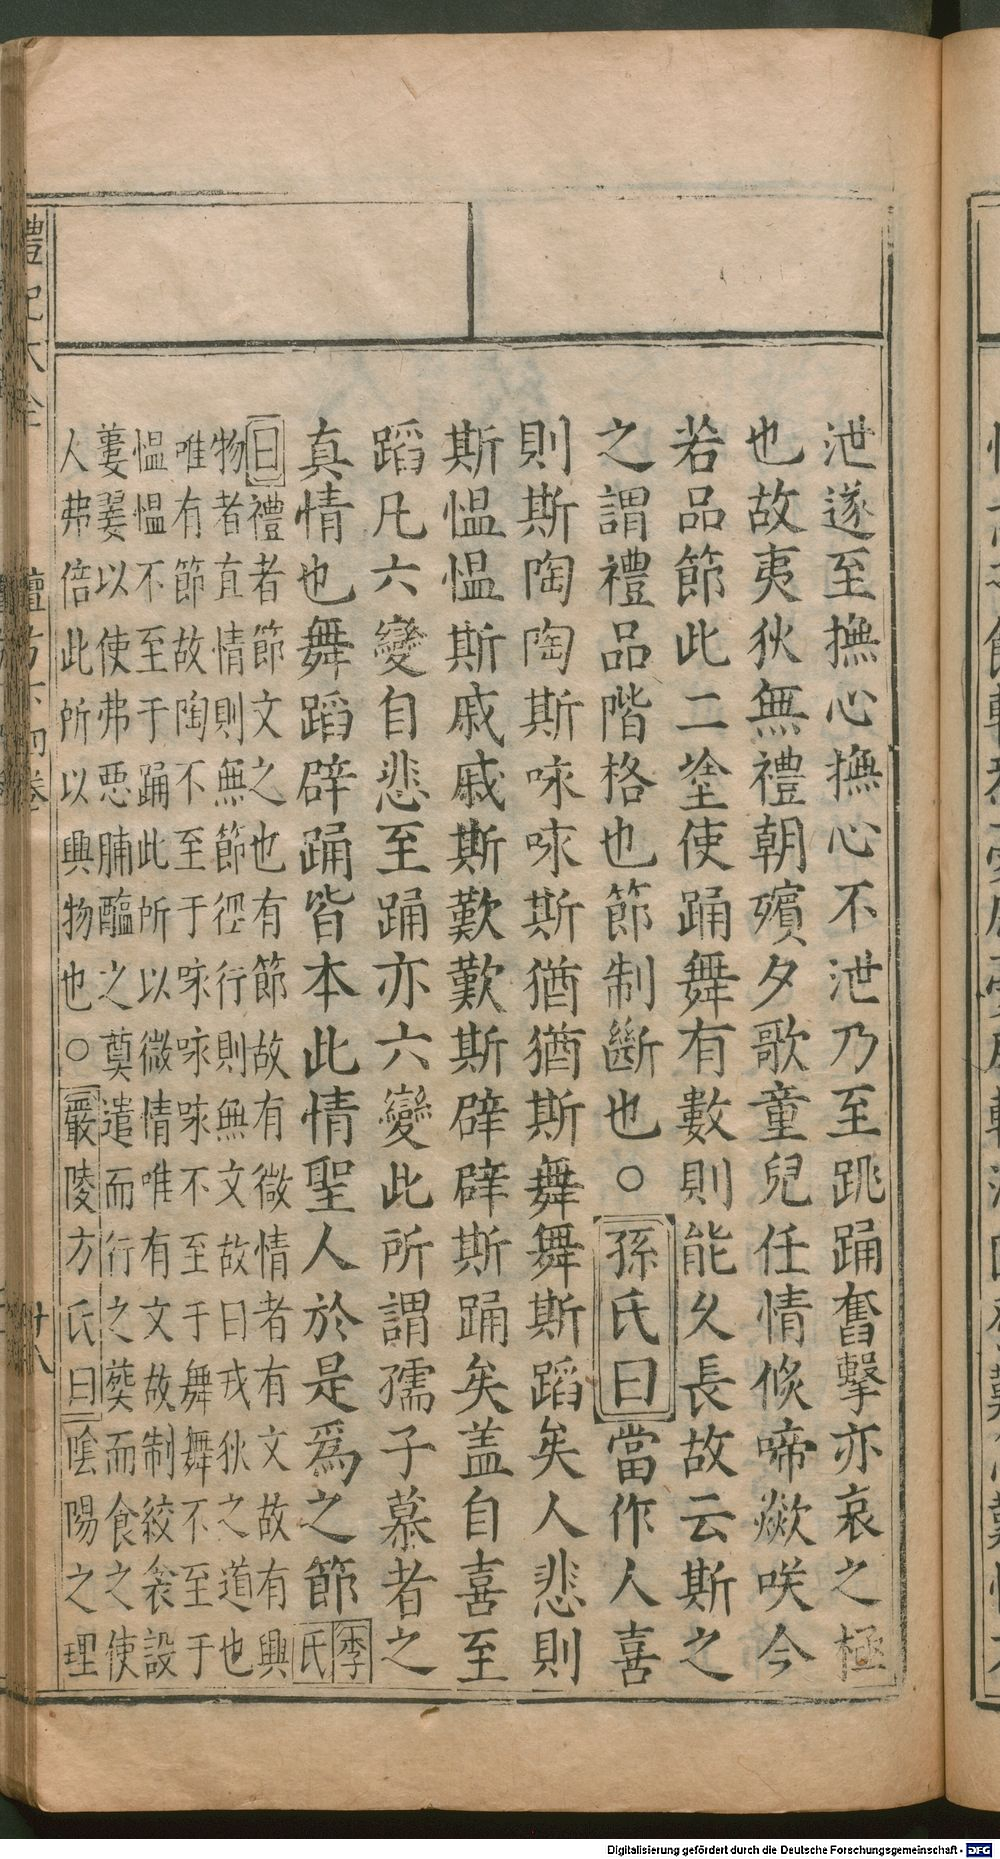 泄遂至撫心撫心不泄乃至跳踊奮擊亦哀之極
也故夷狄無禮朝殯夕歌童兒任情倐啼歘咲今
若品節此二塗使踊舞有數則能久長故云斯之
之謂禮品階格也節制斷也○孫氏曰當作人喜
則斯陶陶斯咏咏斯猶猶斯舞舞斯蹈矣人悲則
斯慍慍斯戚戚斯歎歎斯辟辟斯踊矣盖自喜至
蹈凡六變自悲至踊亦六變此所謂孺子慕者之
真情也舞蹈辟踊皆本此情聖人於是爲之節李氏
曰禮者節文之也有節故有微情者有文故有興
物者直情則無節徑行則無文故曰戎狄之道也
唯有節故陶不至于咏咏不至于舞舞不至于
慍慍不至于踊此所以微情唯有文故制絞衾設
蔞翣以使弗惡脯醢之奠遣而行之葬而食之使
人弗倍此所以興物也○嚴陵方氏曰陰陽之理
禮記大全
檀弓下四卷
廿八
Digitalisierung gefördert durch die Deutsche Forschungsgemeinschaft - DFG